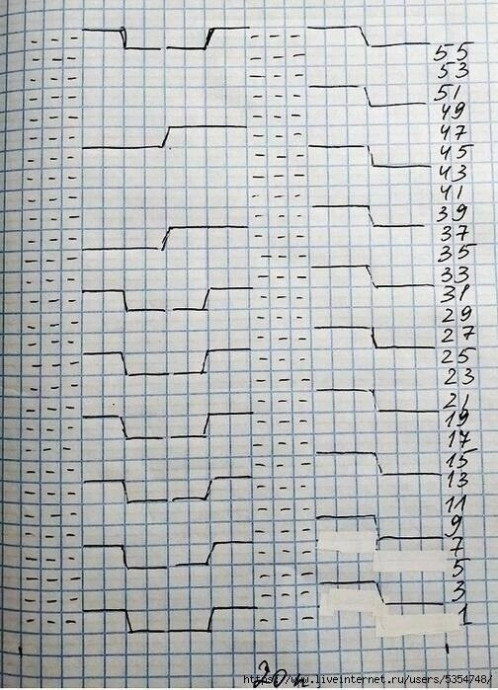 55
53
51
49
47
45
43
41
39
37
35
33
31
29
27
25
23
21
19
17
15
13
11
9
7
5
3
1
https://www.liveinternet.ru/users/5354748/